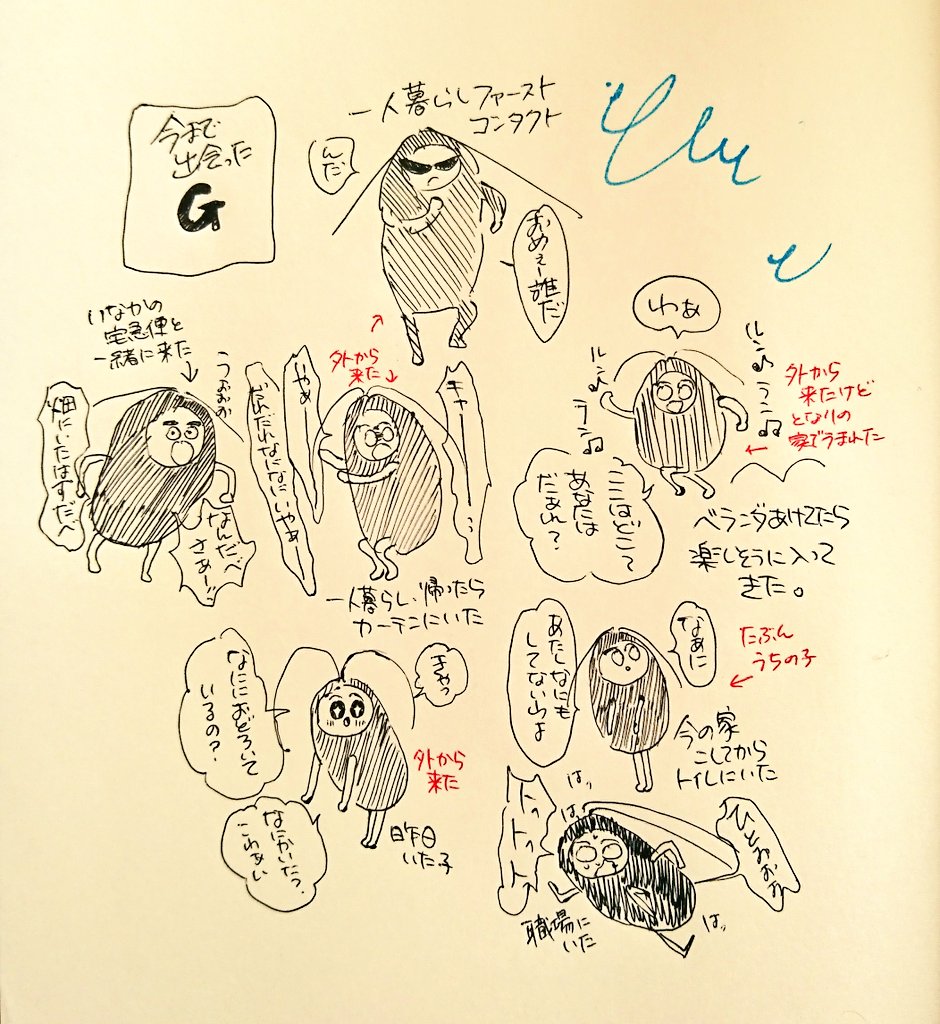 今まで
出会った
G
一人暮らしファースト
コンタクト
んだ
おめぇー誰だ
いなかの
宅急便と
一緒に来た
うおおお
畑にいたはずだべ
なんだべ
さぁー!!
外から
来た
キャー
いやぁ
だれだれなになにいやぁー
一人暮らし、帰ったら
カーテンにいた
わぁ
ルン♪
ラン♫
ルン♪
ラン♫
外から
来たけど
となりの
家でうまれた
ここはどこ?
あなたは
だぁれ?
ベランダあけてたら
楽しそうに入って
きた。
きゃっ
なににおどろいて
いるの?
なにかいた?
こわぁい
外から
来た
昨日
いた子
なぁに
あたしなにも
してないわよ
たぶん
うちの子
今の家
こしてから
トイレにいた
はッ
はッ
ひとおおお
トットット
はッ
職場に
いた